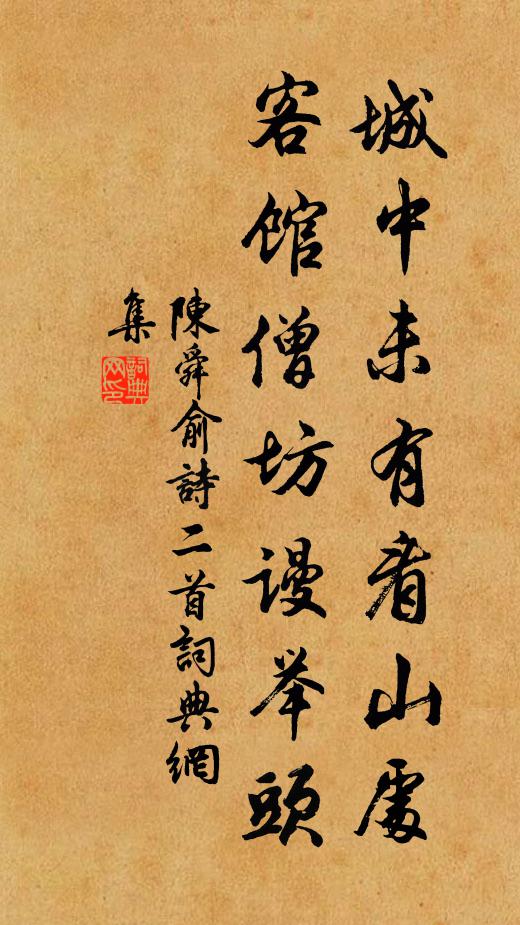 城中未有看山處
客館僧坊謾举頭
陳舜俞詩二首詞典網
集
詞典網印